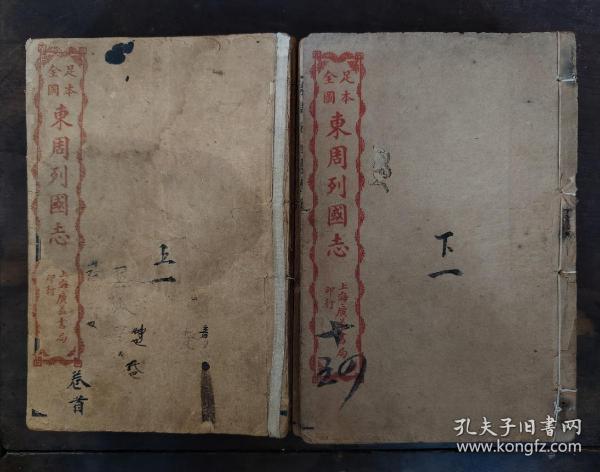 足本
全圖
東周列國志
上海廣益書局
印行
上一
卷首
足本
全圖
東周列國志
上海廣益書局
印行
下一
孔夫子旧书网
www.kongfz.com